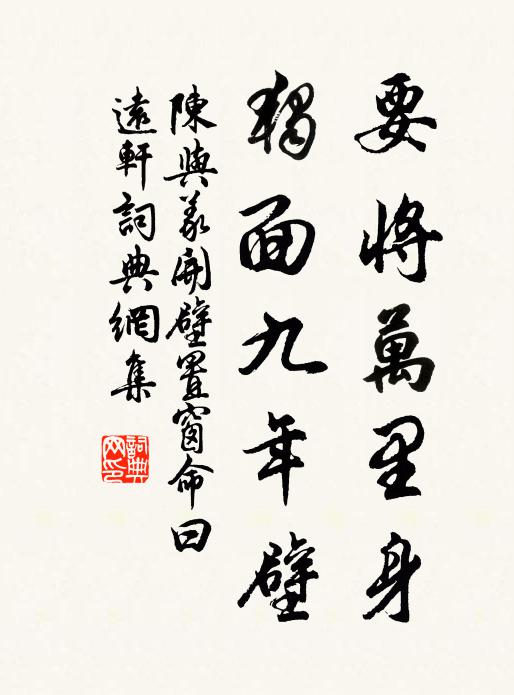 要將萬里身
獨面九年壁
陳與義開壁置窗命曰
遠軒詞典網集
詞典网印